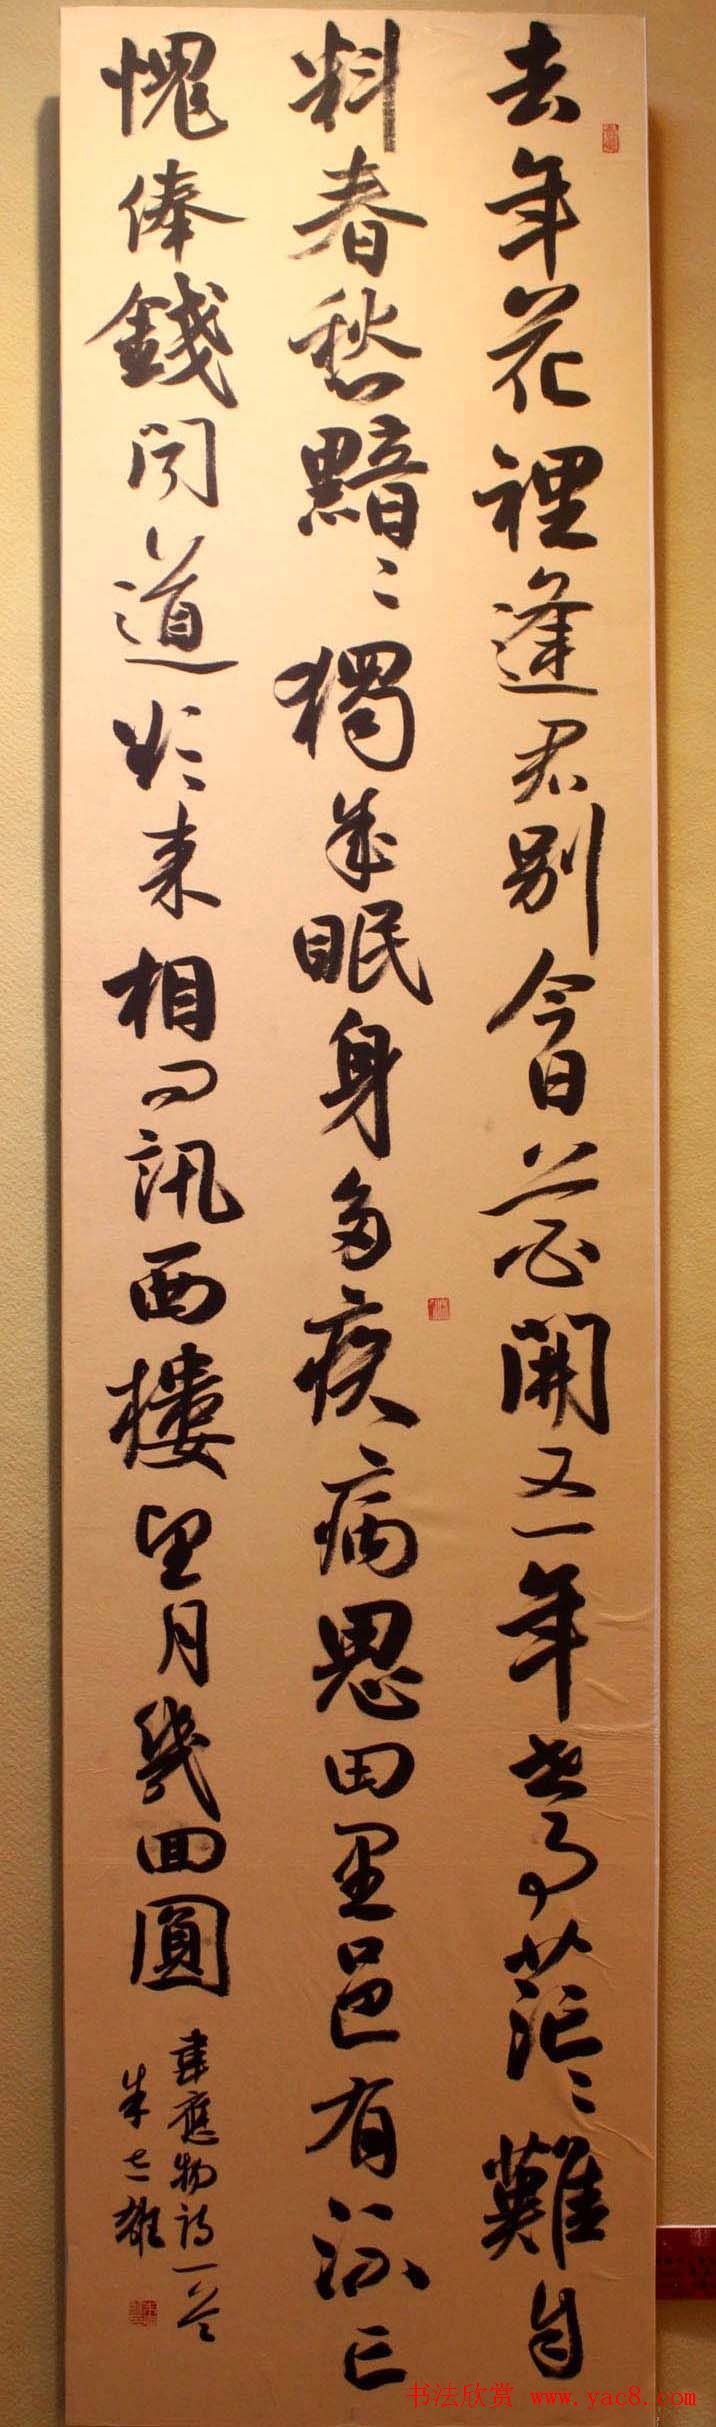 去年花裡逢君別今日花開又一年世事茫々難自
料春愁黯々獨成眠身多疾病思田里邑有流亡
愧俸錢聞道欲來相問訊西樓望月幾回圓
韋應物詩一首
朱雄
书法欣赏 www.yac8.com